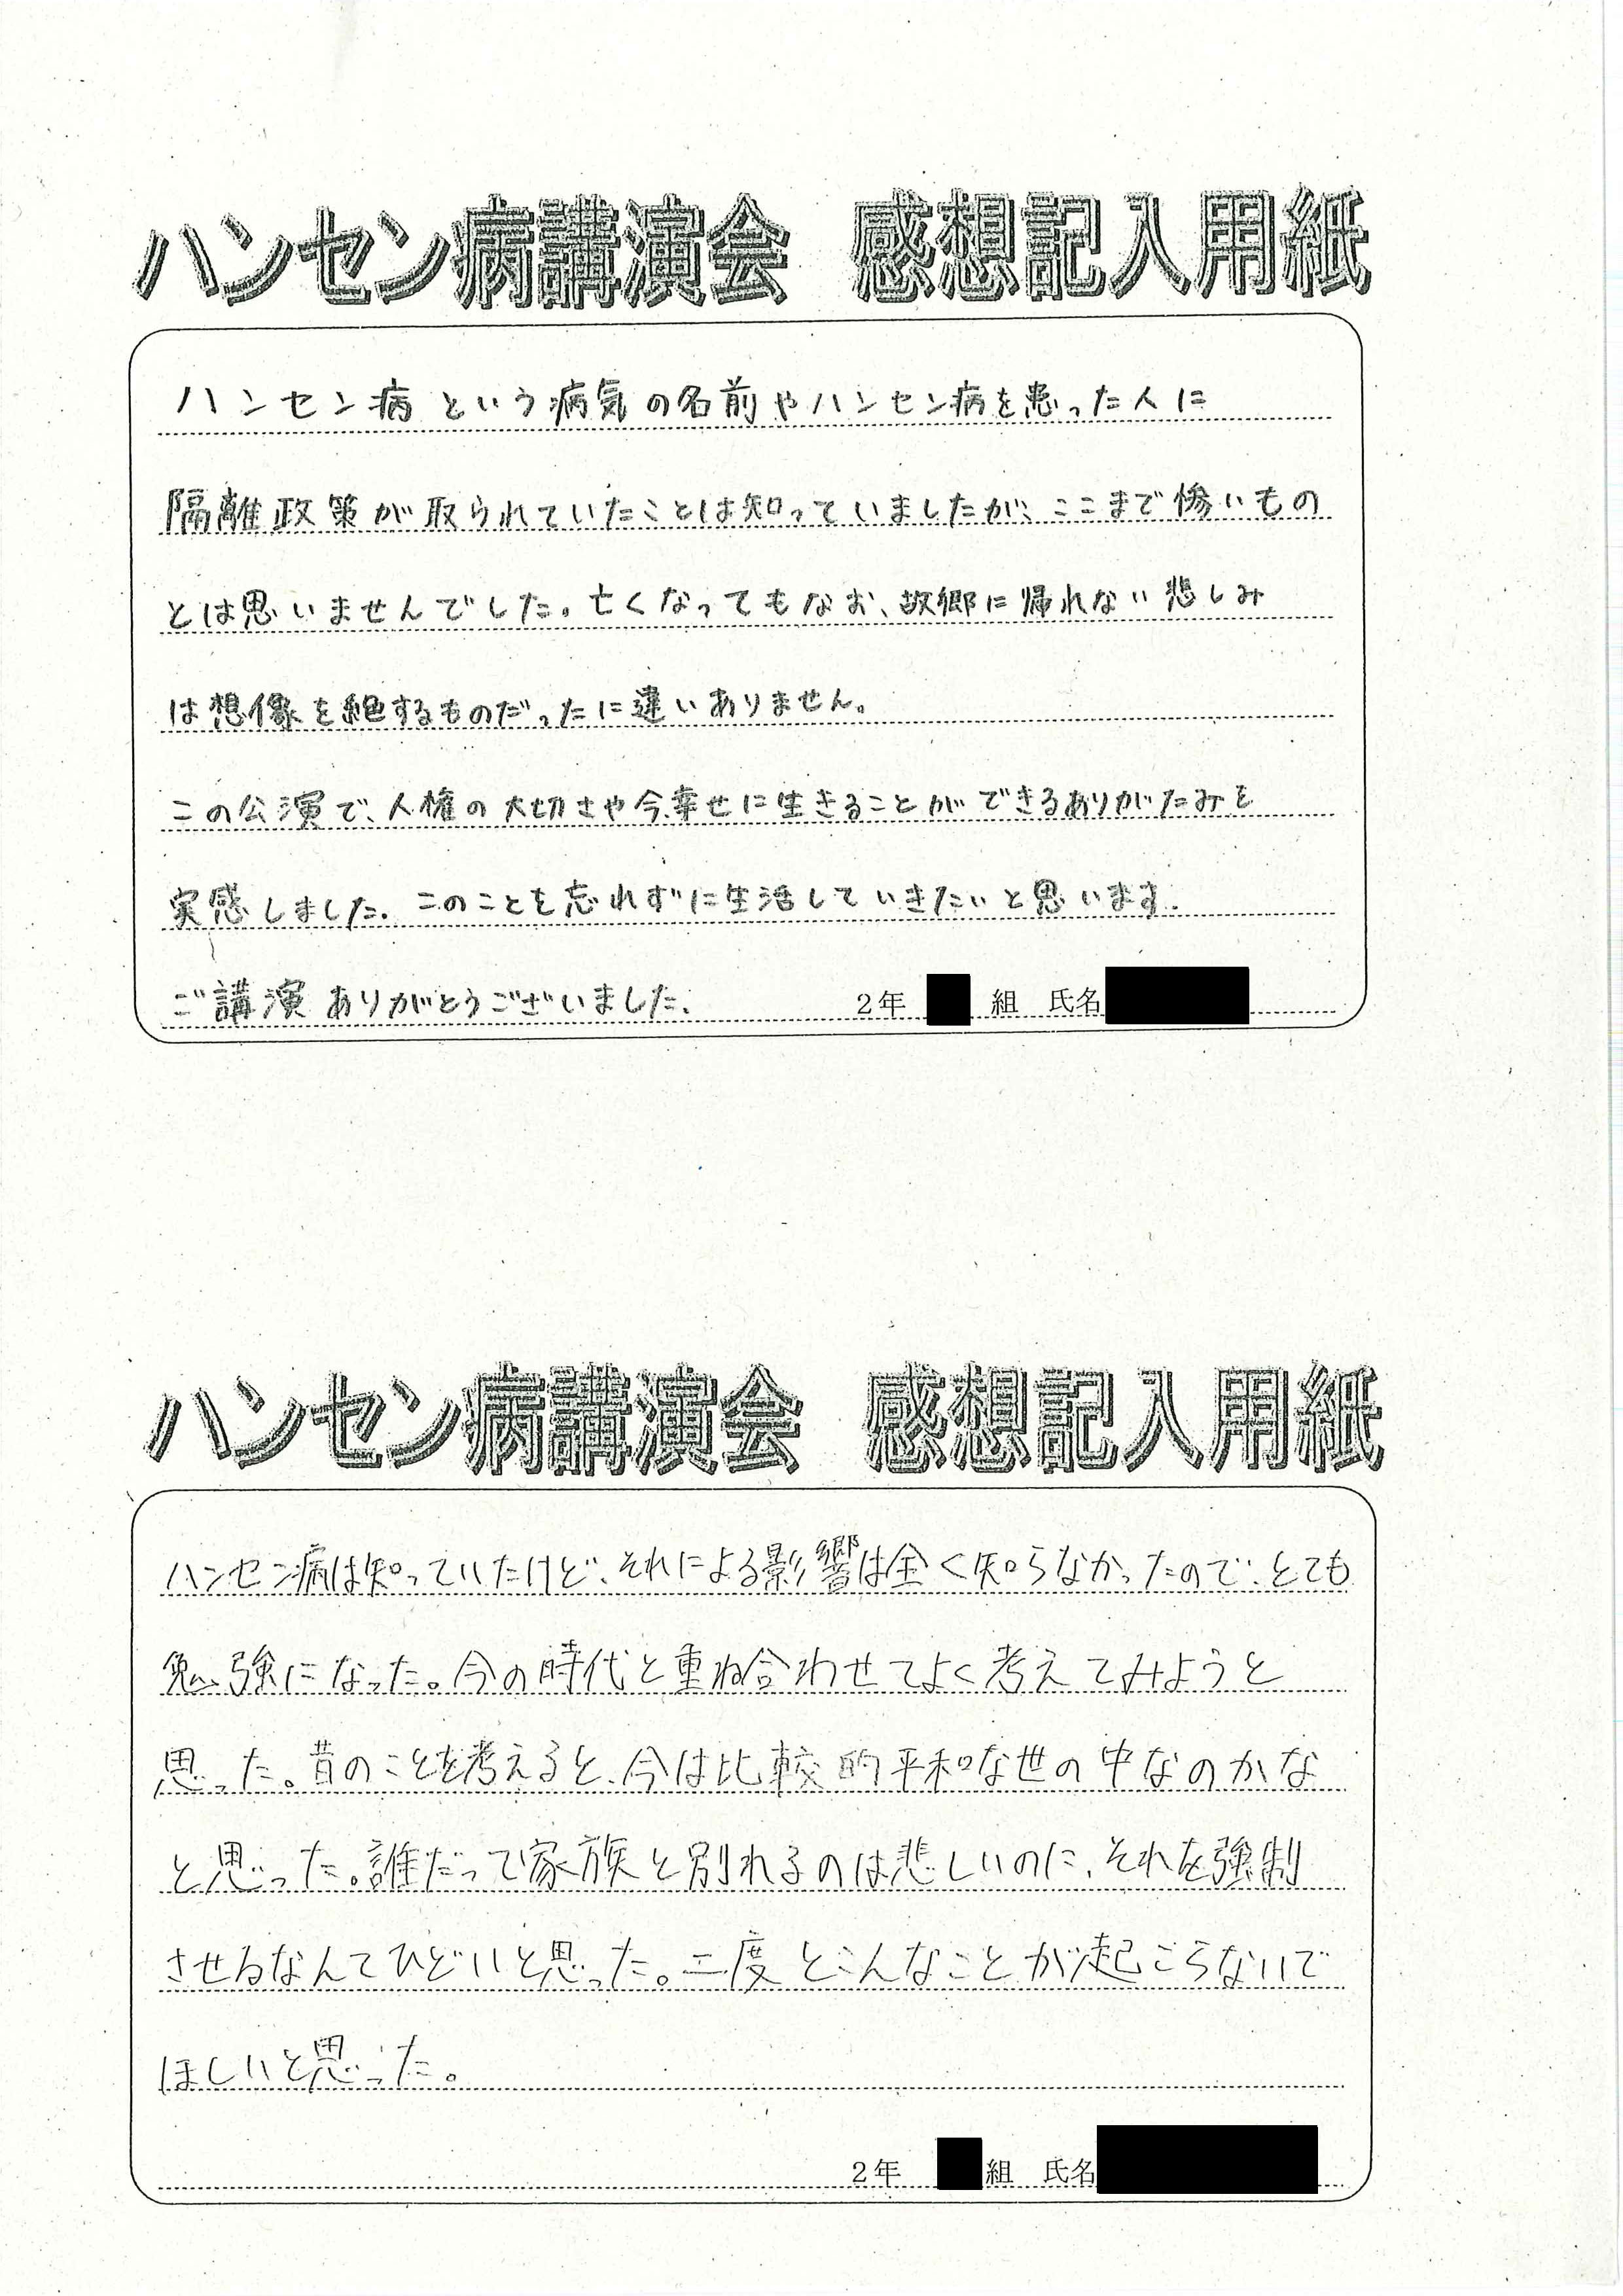 ハンセン病講演会 感想記入用紙
ハンセン病という病気の名前やハンセン病を患った人に
隔離政策が取られていたことは知っていましたが、ここまで惨いもの
とは思いませんでした。亡くなってもなお、故郷に帰れない悲しみ
は想像を絶するものだったに違いありません。
この公演で、人権の大切さや今幸せに生きることができるありがたみを
実感しました。このことを忘れずに生活していきたいと思います。
ご講演ありがとうございました。 2年 組 氏名
ハンセン病講演会 感想記入用紙
ハンセン病は知っていたけど、それによる影響は全く知らなかったので、とても
勉強になった。今の時代と重ね合わせてよく考えてみようと
思った。昔のことを考えると、今は比較的平和な世の中なのかな
と思った。誰だって家族と別れるのは悲しいのに、それを強制
させるなんてひどいと思った。二度とこんなことが起こらないで
ほしいと思った。
2年 組 氏名